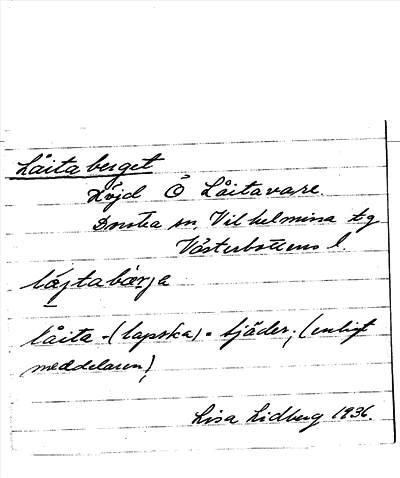 Låitaberget
Höjd Ö Låitavare.
Dorotea sn, Vilhelmina tg
Västerbottens l.
låjtabärja
låita - (lapska) = fjäder, (enligt
meddelaren)
Lisa Lidberg 1936.